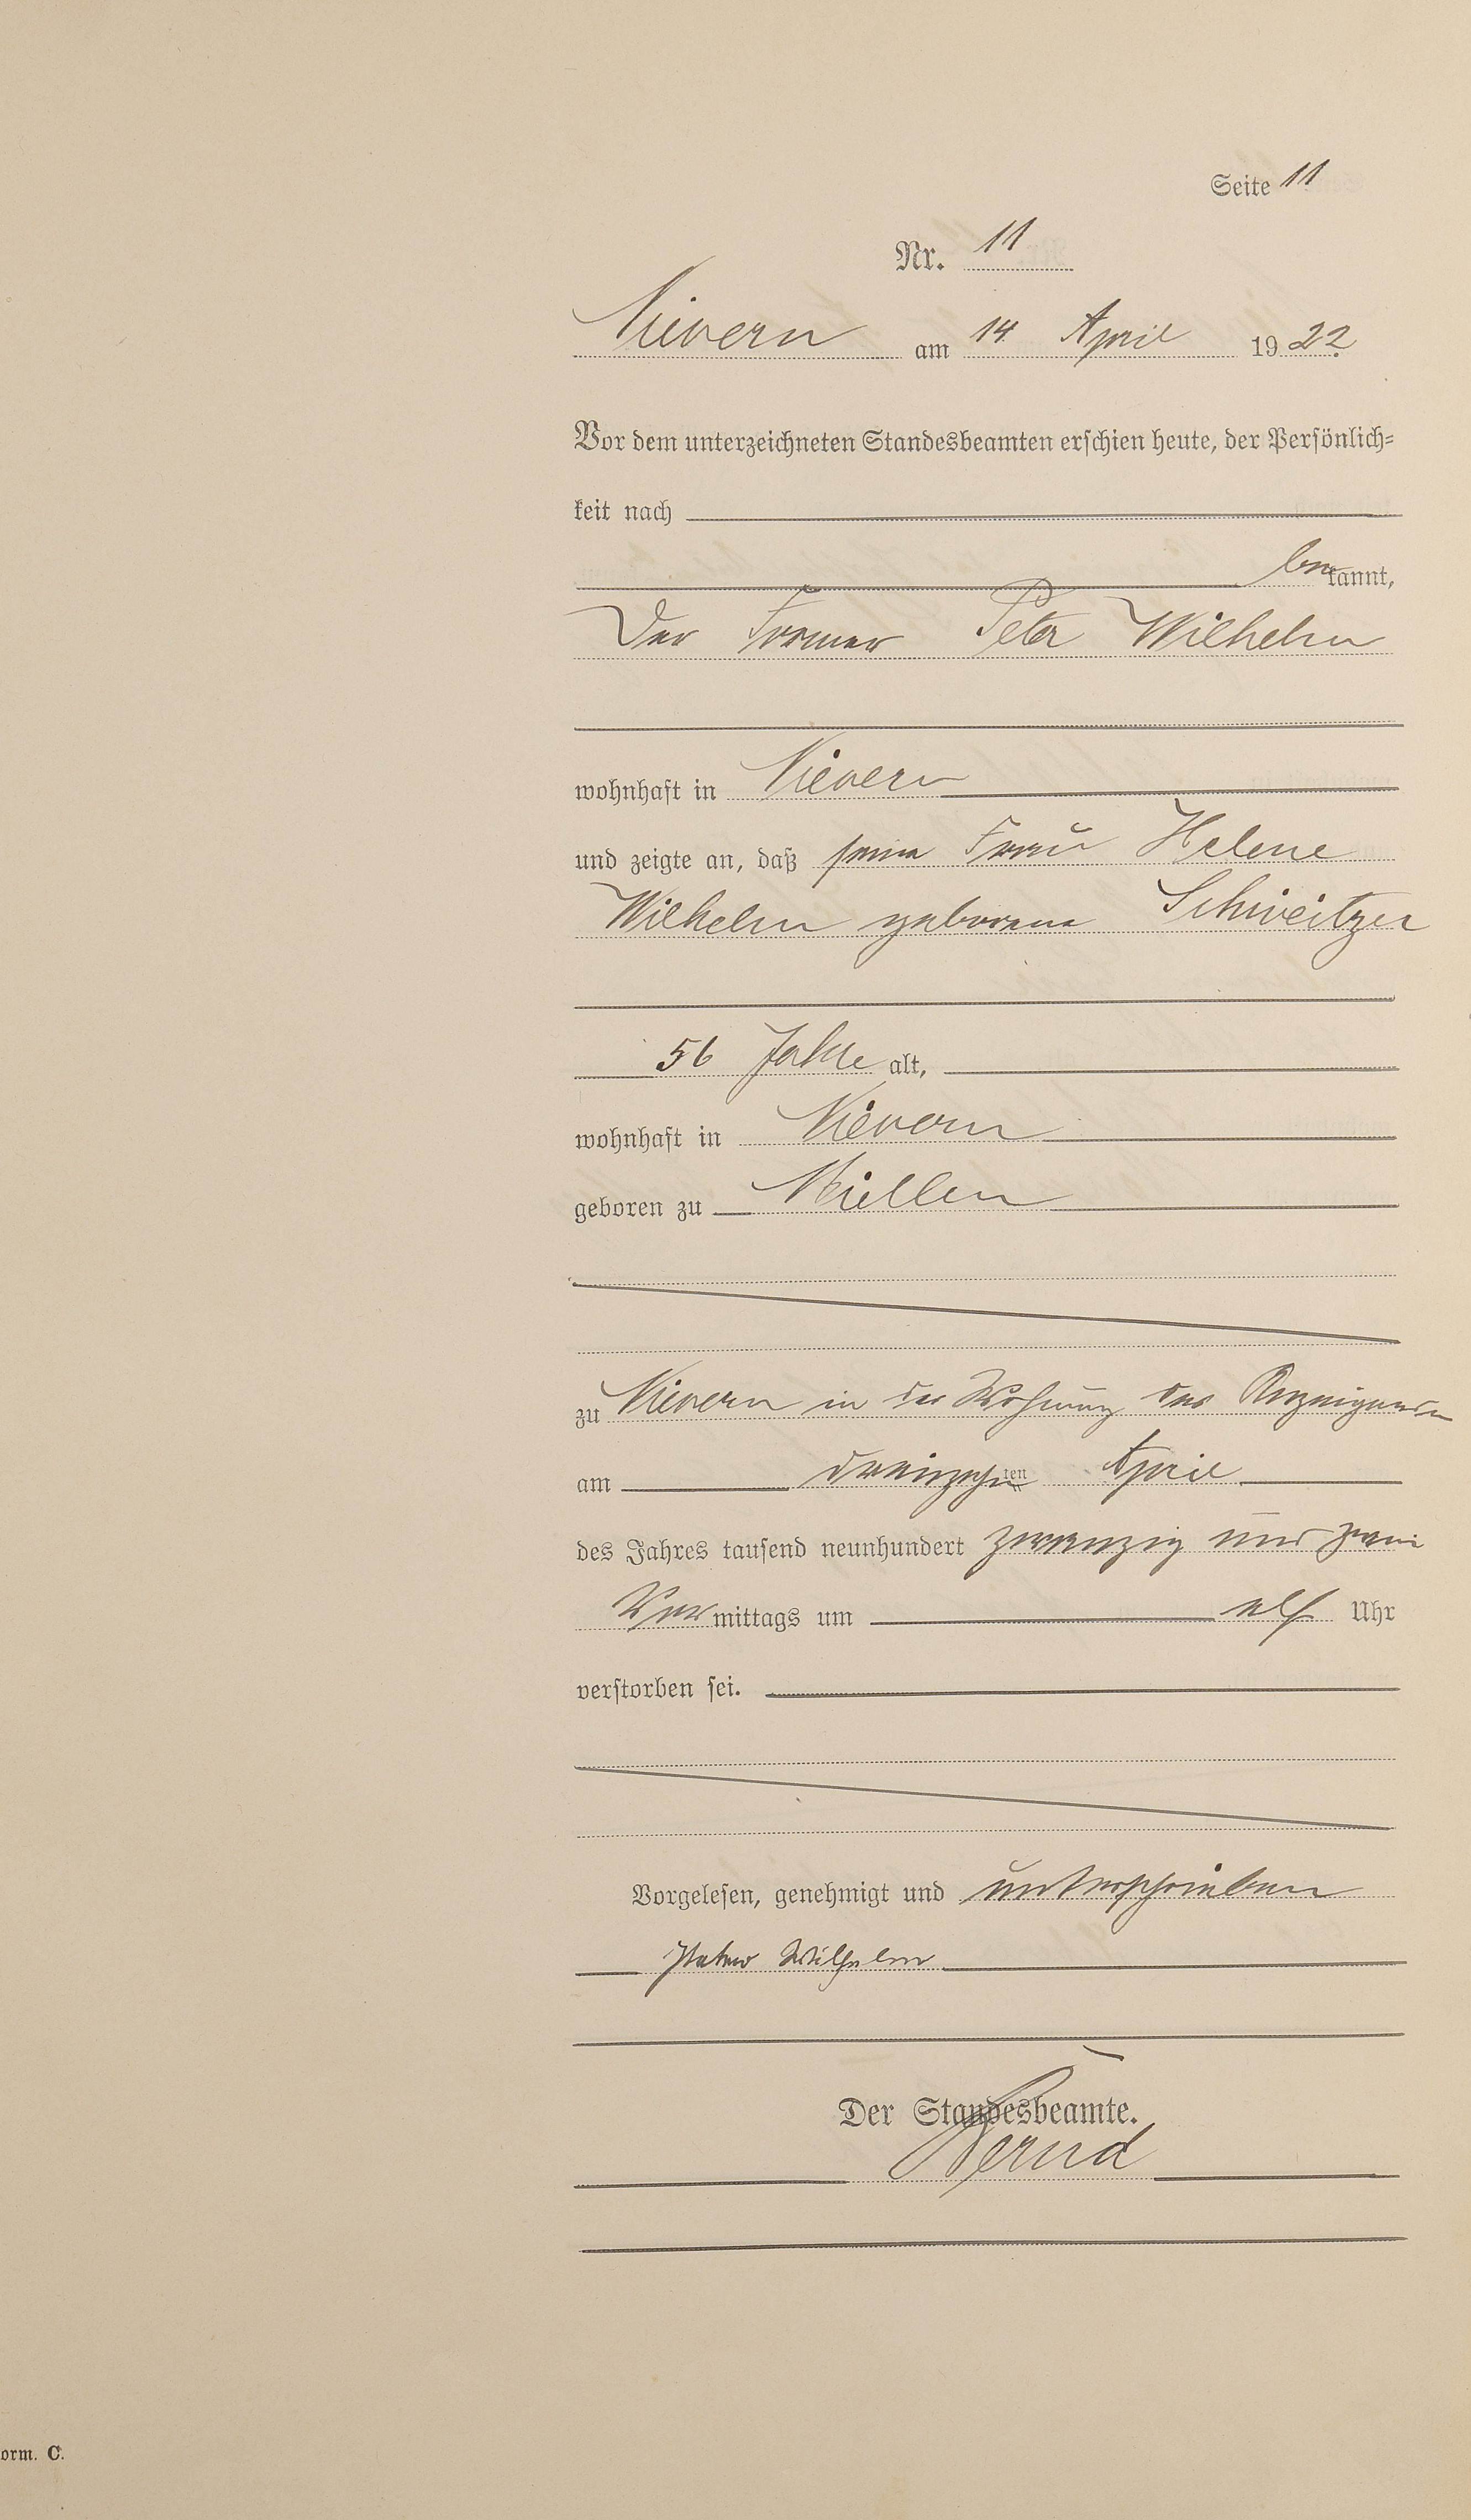 Seite 11
Nr. 11
Nievern am 14. April 1922.
Vor dem unterzeichneten Standesbeamten erschien heute, der Persönlich=
keit nach
bekannt,
Der Former Peter Wilhelm
wohnhaft in Nievern
und zeigte an, daß seine Frau Helene
Wilhelm geborene Schweitzer
56 Jahre alt,
wohnhaft in Nievern
geboren zu Miellen
zu Nievern in der Wohnung des Anzeigenden
am dreizehnten April
des Jahres tausend neunhundert zwanzig und zwei
Vormittags um elf Uhr
verstorben sei.
Vorgelesen, genehmigt und unterschrieben
Peter Wilhelm
Der Standesbeamte.
Bernd
orm. C.